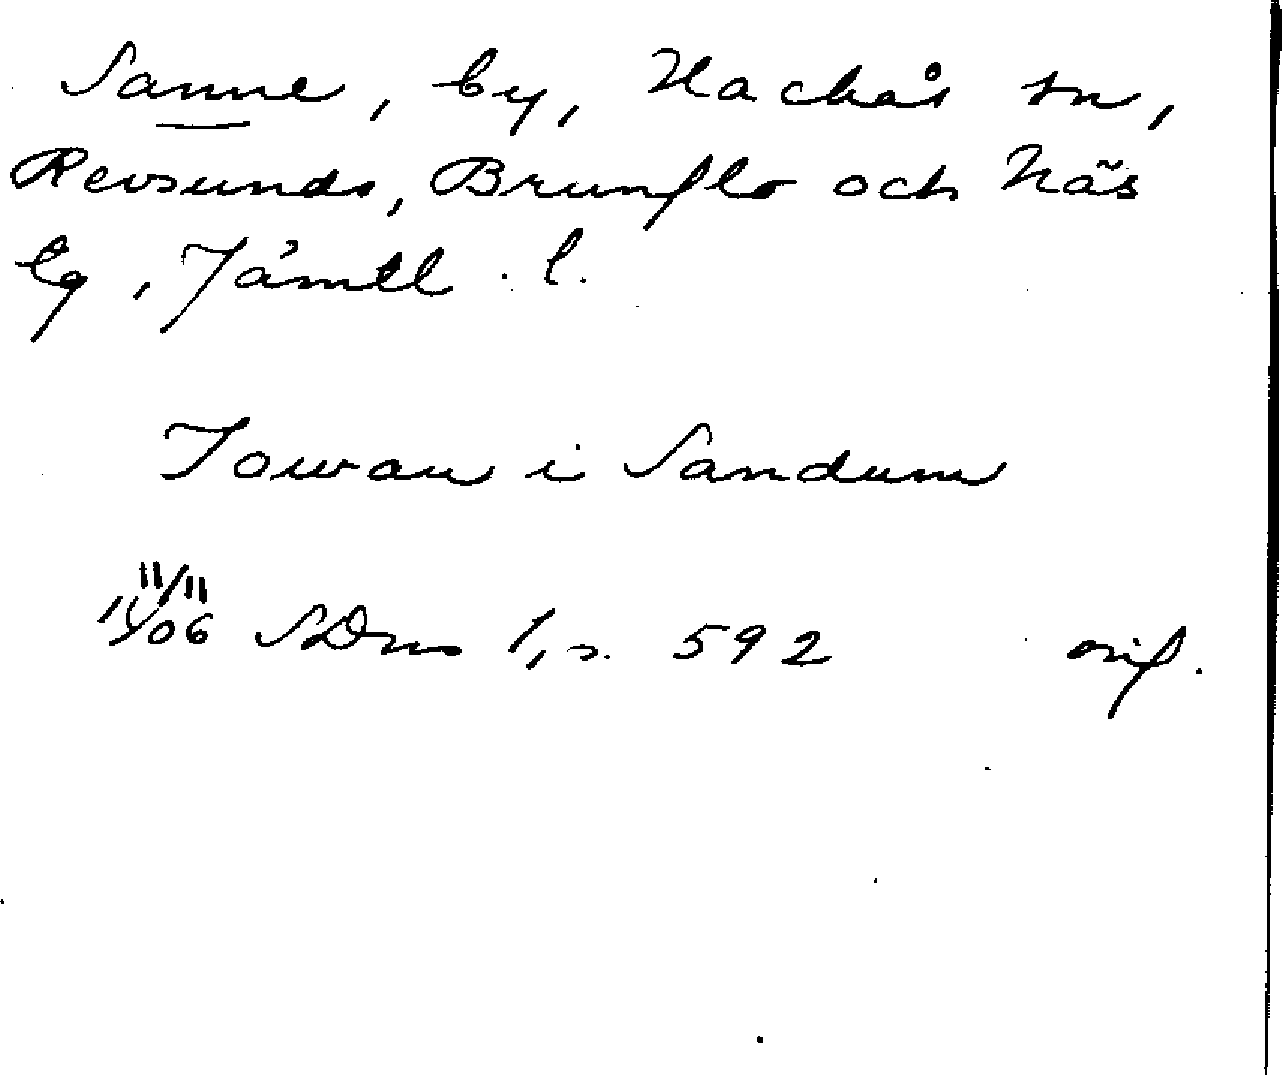 Sanne, by, Hackås sn,
Revsunds, Brunflo och Näs
tg, Jämtl. l.
Jowan i Sandum
11/11
1406 SDns 1, s. 592 orig.